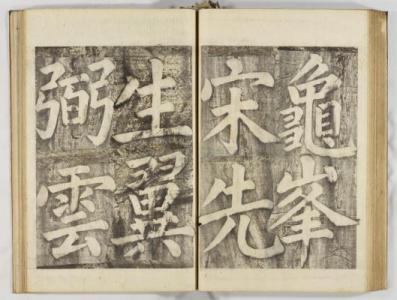 龜峯
宋先
生翼
弼雲